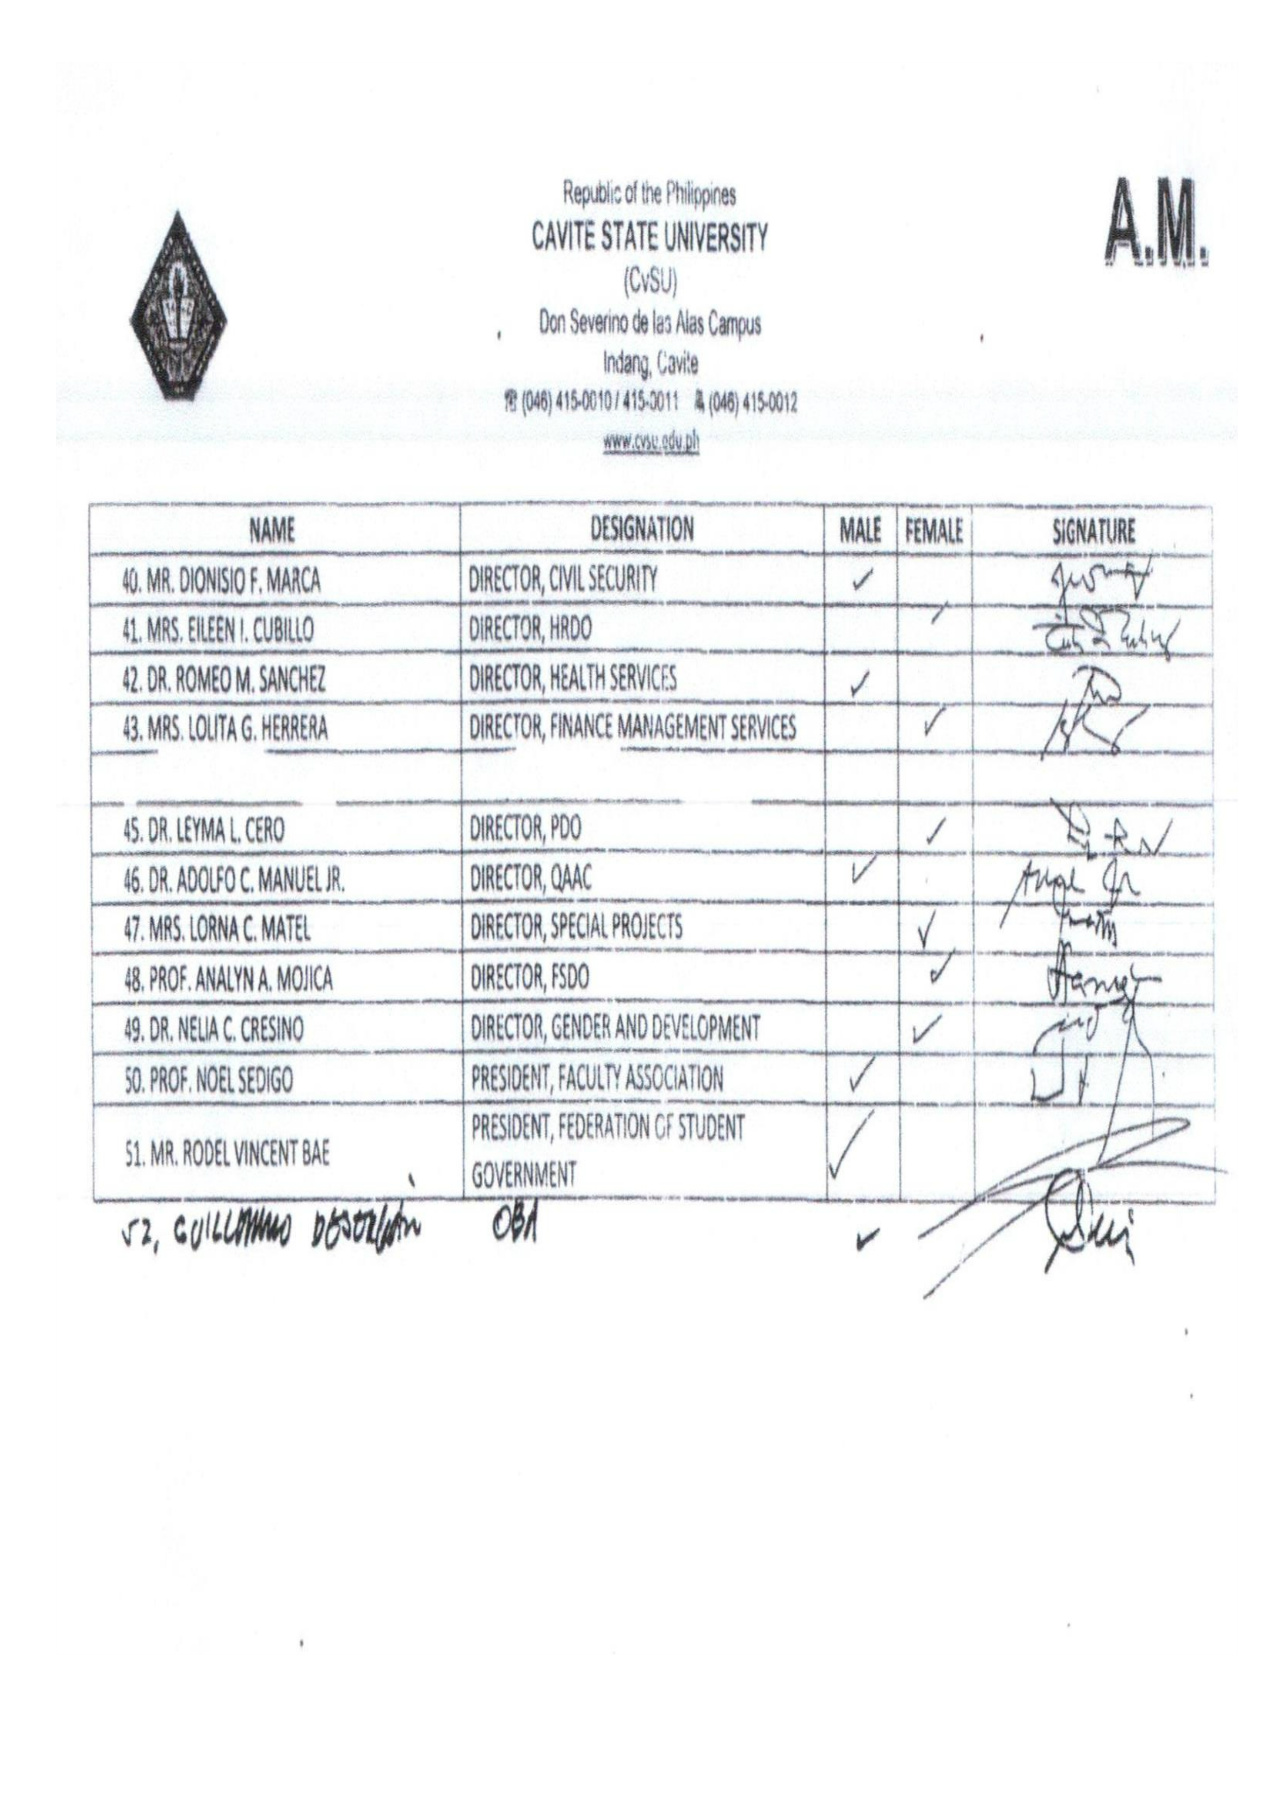 Republic of the Philippines
A.M.
CAVITE STATE UNIVERSITY
(CvSU)
Don Severino de las Alas Campus
Indang, Cavite
☎ (046) 415-0010 / 415-0011 (046) 415-0012
www.cvsu.edu.ph
NAME DESIGNATION MALE FEMALE SIGNATURE
40. MR. DIONISIO F. MARCA DIRECTOR, CIVIL SECURITY ✓
41. MRS. EILEEN I. CUBILLO DIRECTOR, HRDO ✓
42. DR. ROMEO M. SANCHEZ DIRECTOR, HEALTH SERVICES ✓
43. MRS. LOLITA G. HERRERA DIRECTOR, FINANCE MANAGEMENT SERVICES ✓
45. DR. LEYMA L. CERO DIRECTOR, PDO ✓
46. DR. ADOLFO C. MANUEL JR. DIRECTOR, QAAC ✓
47. MRS. LORNA C. MATEL DIRECTOR, SPECIAL PROJECTS ✓
48. PROF. ANALYN A. MOJICA DIRECTOR, FSDO ✓
49. DR. NELIA C. CRESINO DIRECTOR, GENDER AND DEVELOPMENT ✓
50. PROF. NOEL SEDIGO PRESIDENT, FACULTY ASSOCIATION ✓
51. MR. RODEL VINCENT BAE PRESIDENT, FEDERATION OF STUDENT
GOVERNMENT ✓
52, OBA ✓